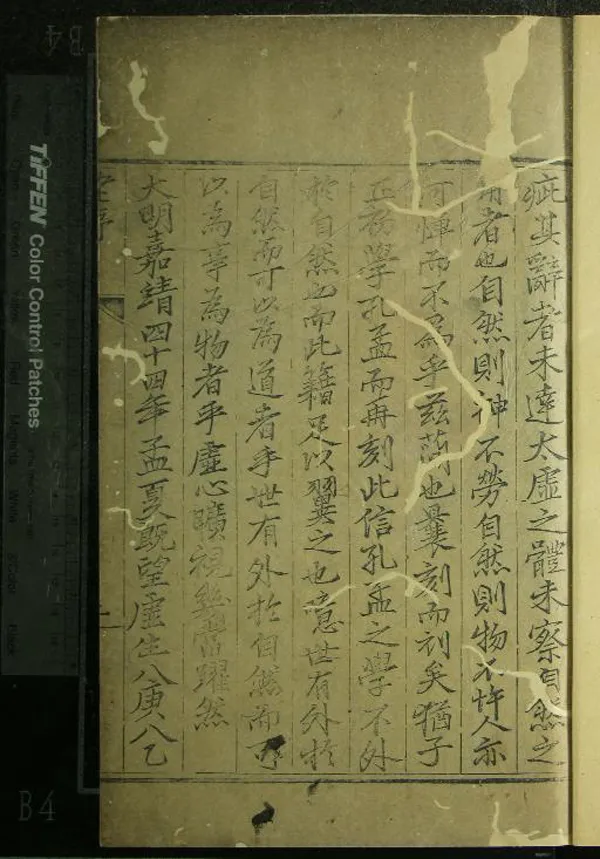 疵其辭者未達太虛之體未察自然之
用者也自然則神不勞自然則物不忤人亦
何憚而不為乎茲蘭也曩刻而刓矣猶子
正務學孔孟而再刻此信孔孟之學不外
於自然也而此籍足以翼之也噫世有外於
自然而可以為道者乎世有外於自然而可
以為亭為物者乎虛心曠視躍然
大明嘉靖四十四年孟夏既望虛生八庚八乙
TIFFEN Color Control Patches
B4